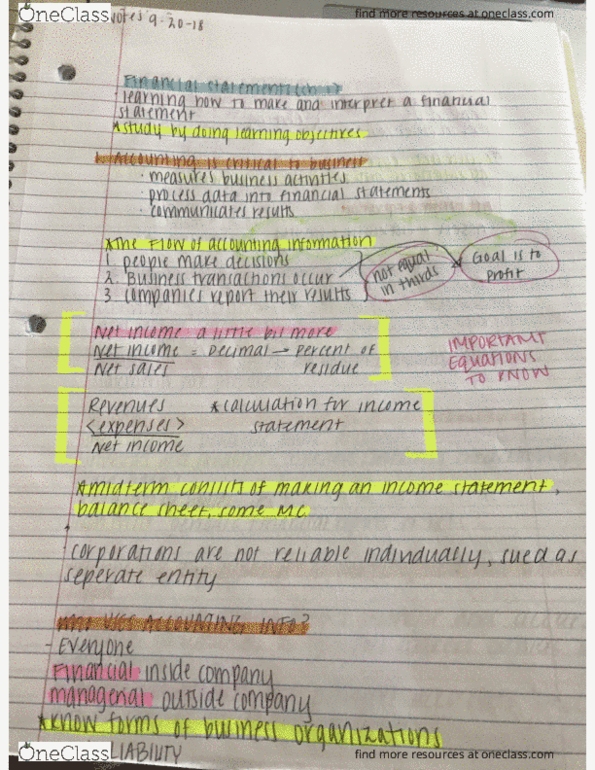 OneClass
find more resources at oneclass.com
notes 9-20-18
Financial statements (ch 1)
learning how to make and interpret a financial
statement
*study by doing learning objectives
1. Accounting is critical to business
· measures business activities
· process data into financial statements
· communicates results
*The Flow of accounting information
1 people make decisions
2. Business transactions occur
3 companies report their results
not equal
in thirds
Goal is to
profit
Net income a little bit more
Net income = Decimal → percent of
Net sales residue
IMPORTANT
EQUATIONS
TO KNOW
Revenues *calculation for income
<expenses> statement
Net income
*midterm consist of making an income statement,
balance sheet, some MC
corporations are not reliable individually, sued as
seperate entity
USES ACCOUNTING INFO?
- Everyone
Financial inside company
managerial outside company
*know forms of business organizations
LIABILITY
OneClass
find more resources at oneclass.com